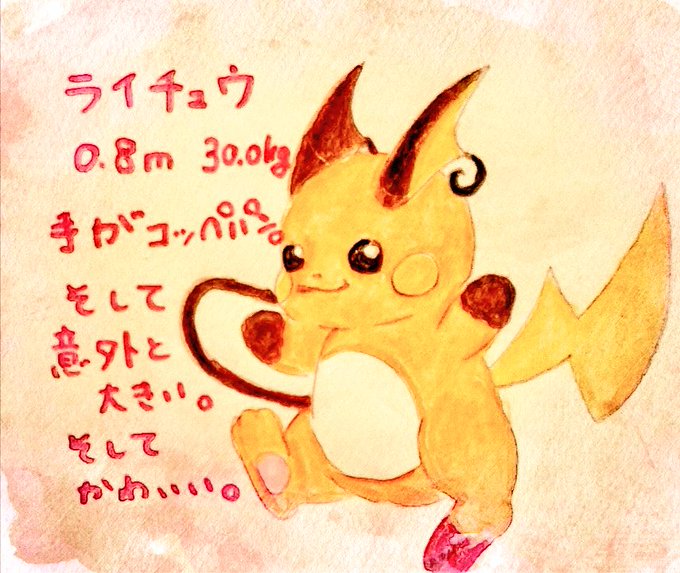 ライチュウ
0.8m 30.0kg
手がコッペパン。
そして
意外と
大きい。
そして
かわいい。